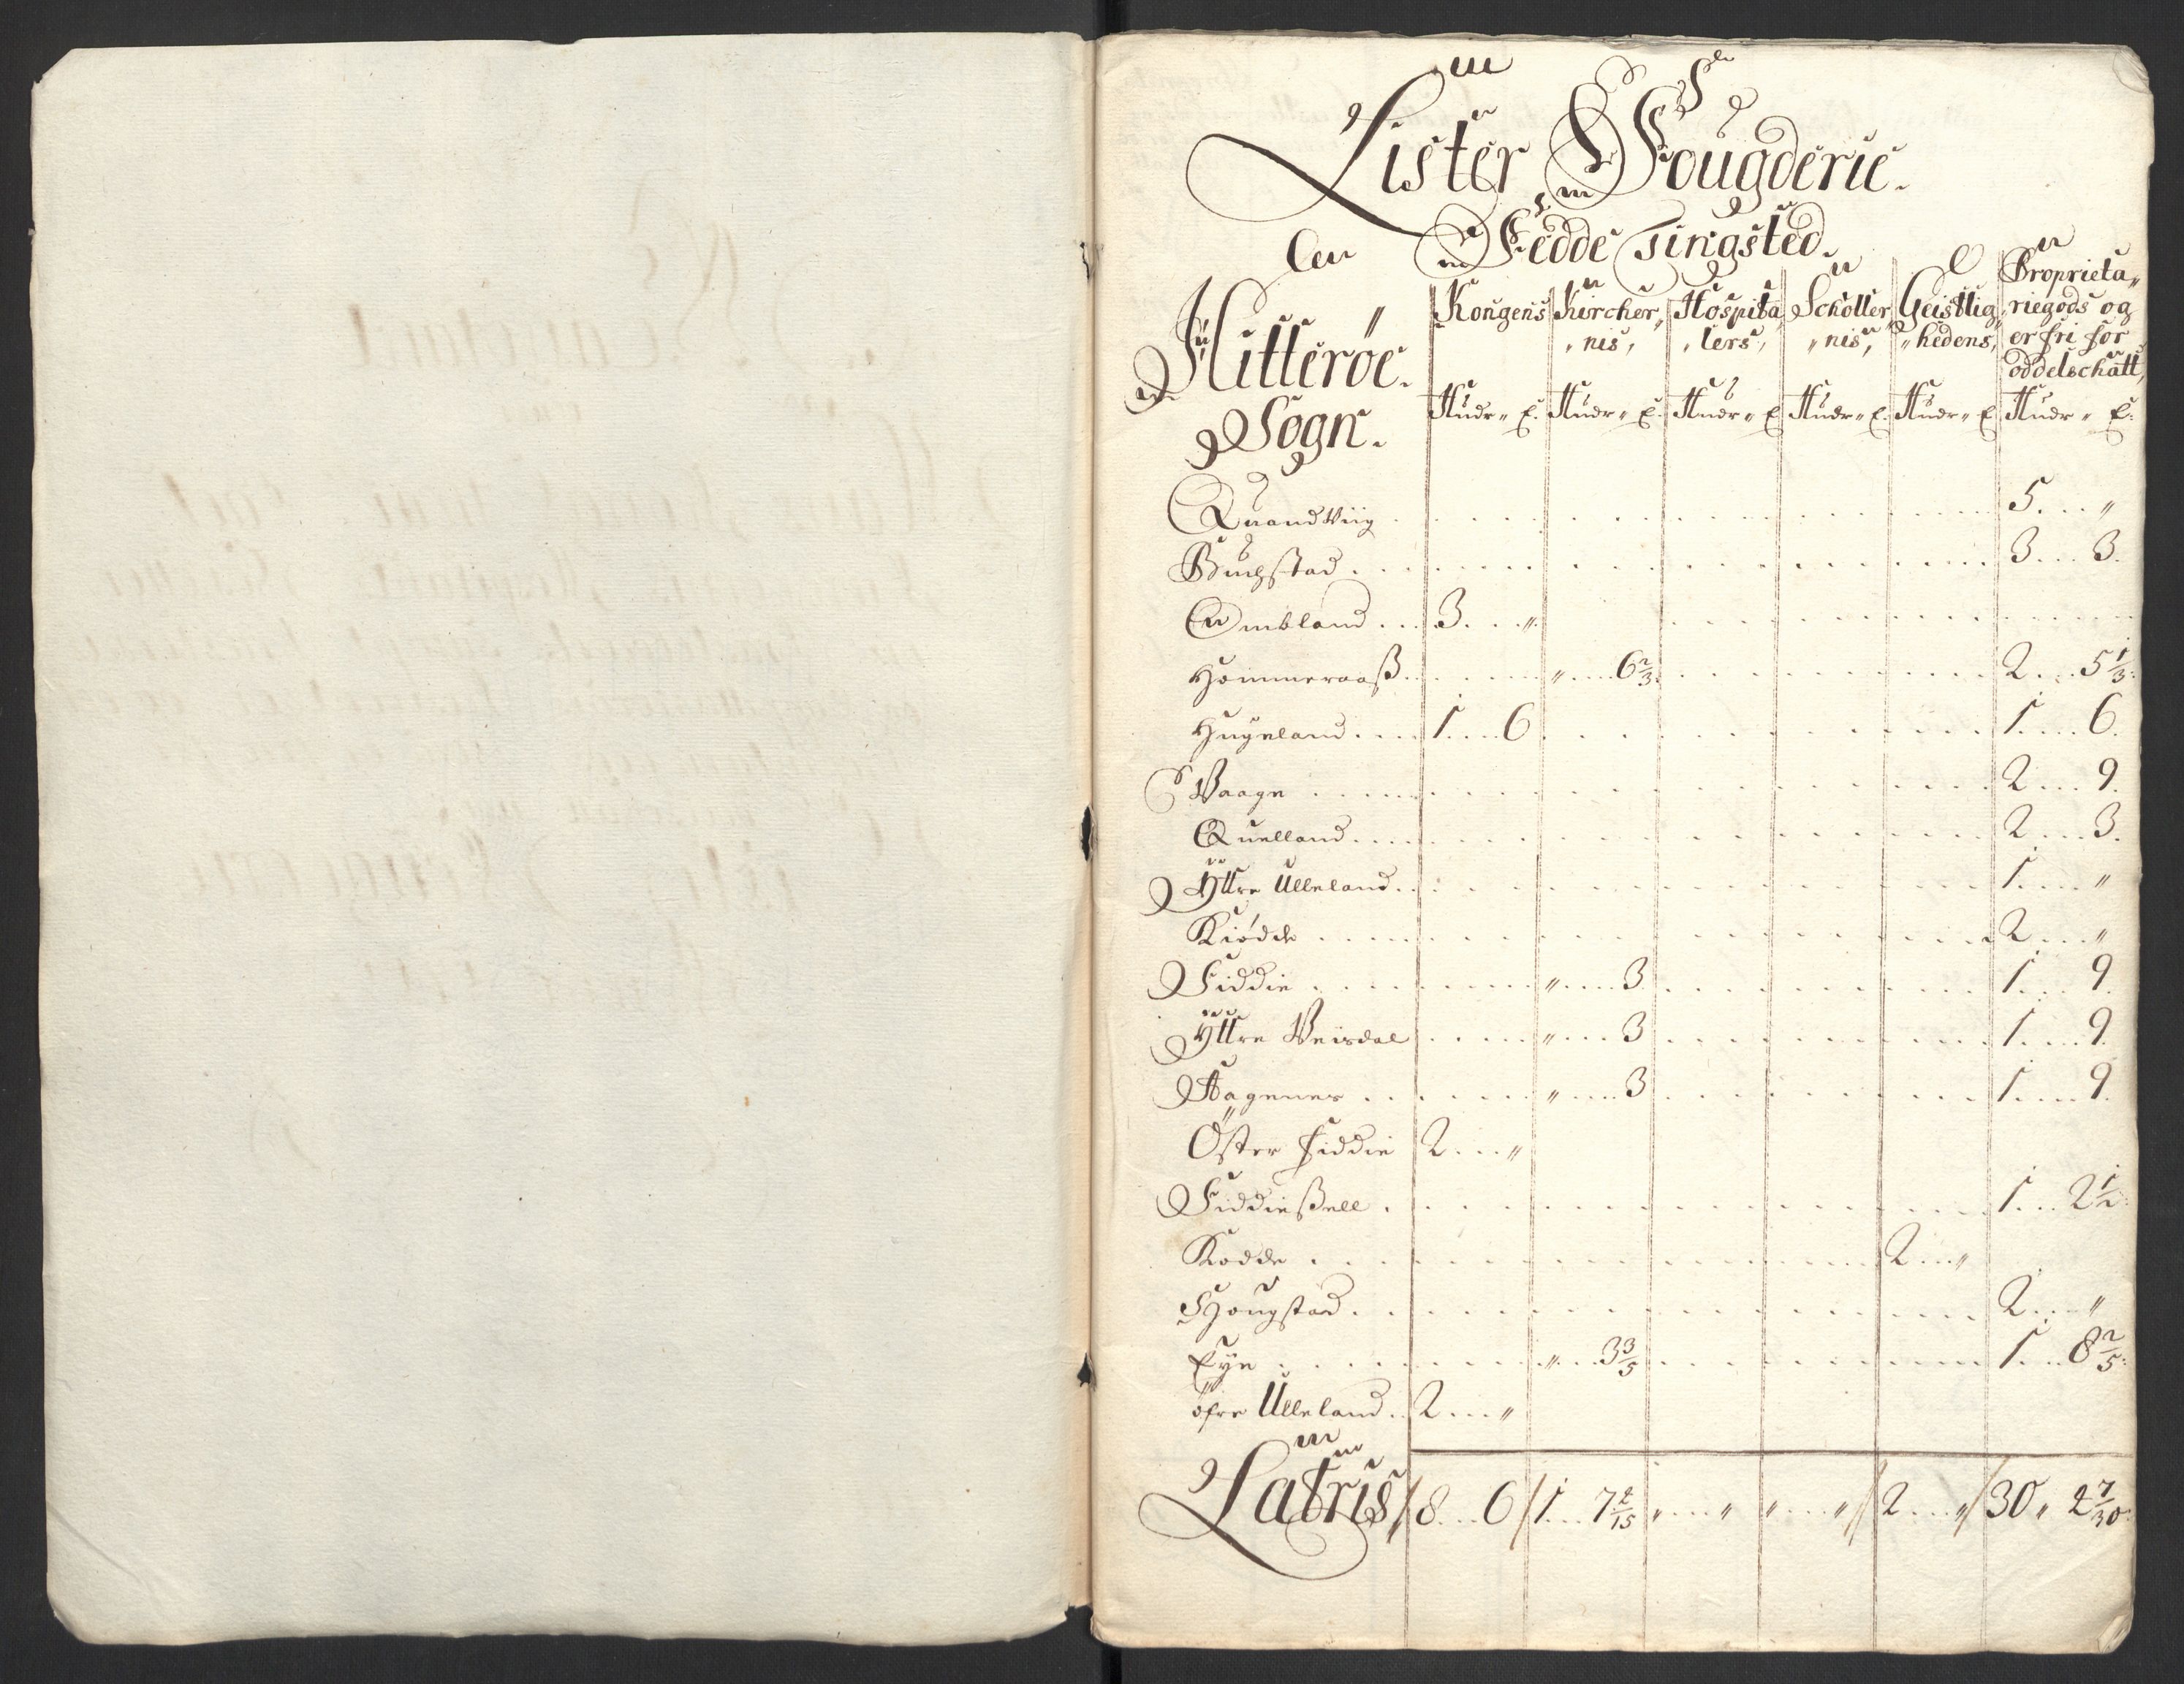 Lister Fougderie.
Fedde Tingsted.
Hitterøe. Sogn.
Kongens Kircher, nis, Hospita lers, Scholler, nis, Geistlig, hedens, Proprieta, riegods og er fri for oddelschatt,
Hudr „ E. Hudr „ E. Hudr „ E Hudr „ E. Hudr „ E Hudr „ E:
Quandviig . . . 5 . . „
Buchstad . . . 3 . . 3.
Ombland . . 3 . . „
Hommeraaß . . „ . . 6 2/3 . . 2 . . 5 1/3:
Hugeland . . 1 . . 6 . . 1 . . 6.
Waage . . . 2 . . 9.
Quelland . . . 2 . . 3.
Yttre Ulleland . . 1 . . „
Kiødde . . . 2 . . „
Fiddie . . „ . . 3 . . 1 . . 9.
Yttre Veisdal . . „ . . 3 . . 1 . . 9.
Hagenes . . „ . . 3 . . 1 . . 9.
Öster Fiddie 2 . . „
Fiddießell . . . 1 . . 2 1/2:
Kodde . . . 2 . . „
Hougstad . . . 2 . . „
Eÿe . . „ . . 3 3/5 . . 1 . . 8 2/5:
öfre Ulleland . . 2 . . „
Latris / 8 . . 6 / 1 . . 7 4/15 „ . . „ „ . . „ / 2 . . „ / 30 „ 2 7/30: